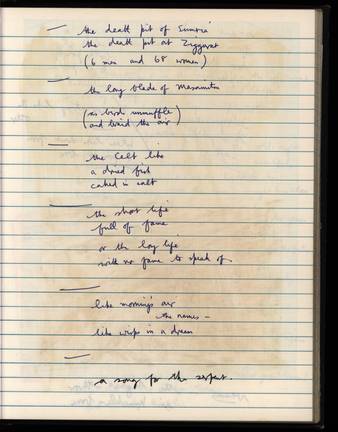 — the death pit of
the death pit at Ziggurat
(6 men and 68 women)
— the long blade of
(as birds unmuffle
and braid the air)
— the Celt like
a dried fish
caked in salt
— the short life
full of fame
or the long life
with no fame to speak of
— like morning's air
the names –
like wisps in a dream
—
a song for the serpent.